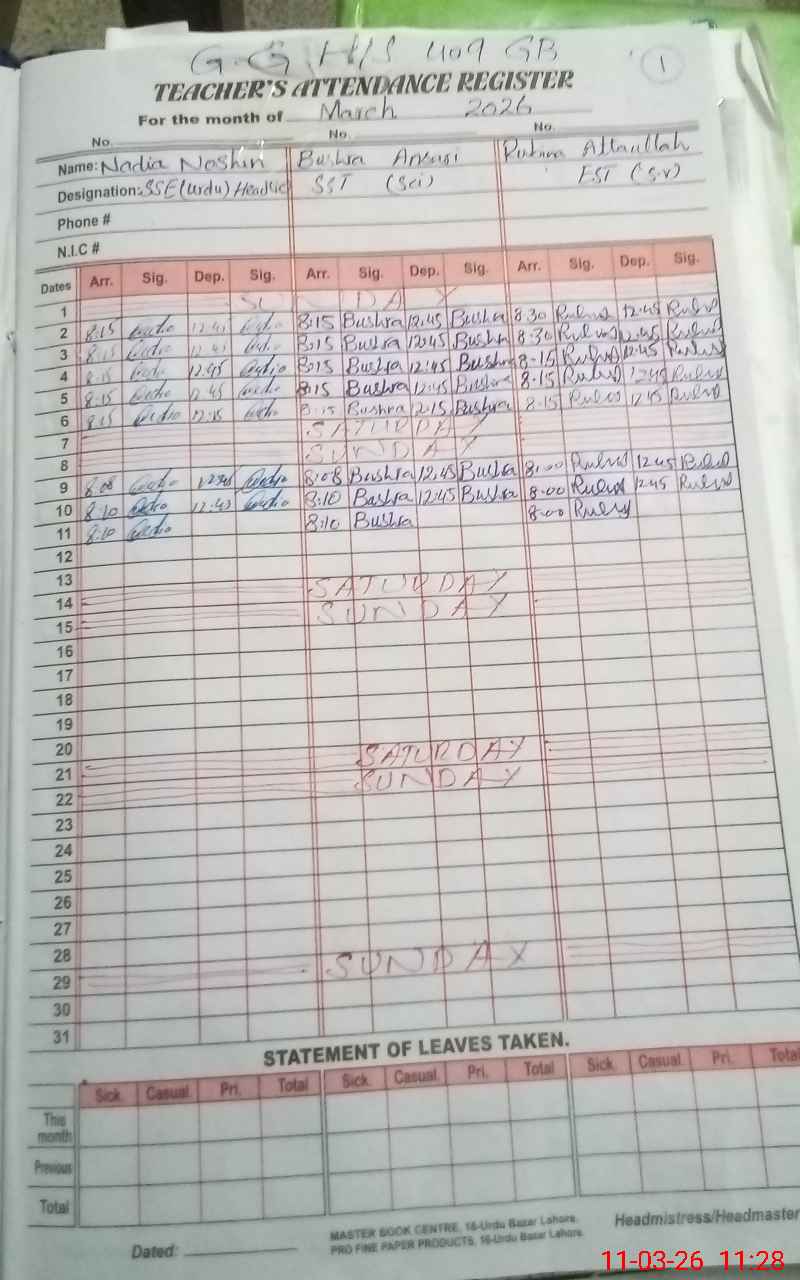 G.G.H/S 409 GB
1
TEACHER'S ATTENDANCE REGISTER
For the month of March 2026
No. No. No.
Name: Nadia Noshin Bushra Ansari Attaullah
Designation: SSE (Urdu) SST (Sci) EST (S.V)
Phone #
N.I.C #
Dates Arr. Sig. Dep. Sig. Arr. Sig. Dep. Sig. Arr. Sig. Dep. Sig.
1 SUNDAY
2 8:15 12:45 8:15 Bushra 12:45 Bushra 8:30 12:45
3 8:15 12:45 8:15 Bushra 12:45 Bushra 8:30 12:45
4 8:15 12:45 8:15 Bushra 12:45 Bushra 8:15 12:45
5 8:15 12:45 8:15 Bushra 12:45 Bushra 8:15 12:45
6 8:15 8:15 Bushra Bushra 8:15
7 SATURDAY
8 SUNDAY
9 8:08 8:08 Bushra 12:45 Bushra 8:00 12:45
10 8:10 12:45 8:10 Bushra 12:45 Bushra 8:00 12:45
11 8:10 8:10 Bushra 8:00
12
13
14 SATURDAY
15 SUNDAY
16
17
18
19
20
21 SATURDAY
22 SUNDAY
23
24
25
26
27
28
29 SUNDAY
30
31
STATEMENT OF LEAVES TAKEN.
Sick. Casual. Pri. Total Sick. Casual. Pri. Total Sick. Casual. Pri. Total
This month
Previous
Total
Dated:
MASTER BOOK CENTRE, 16-Urdu Bazar Lahore.
PRO FINE PAPER PRODUCTS, 16-Urdu Bazar Lahore.
Headmistress/Headmaster
11-03-26 11:28